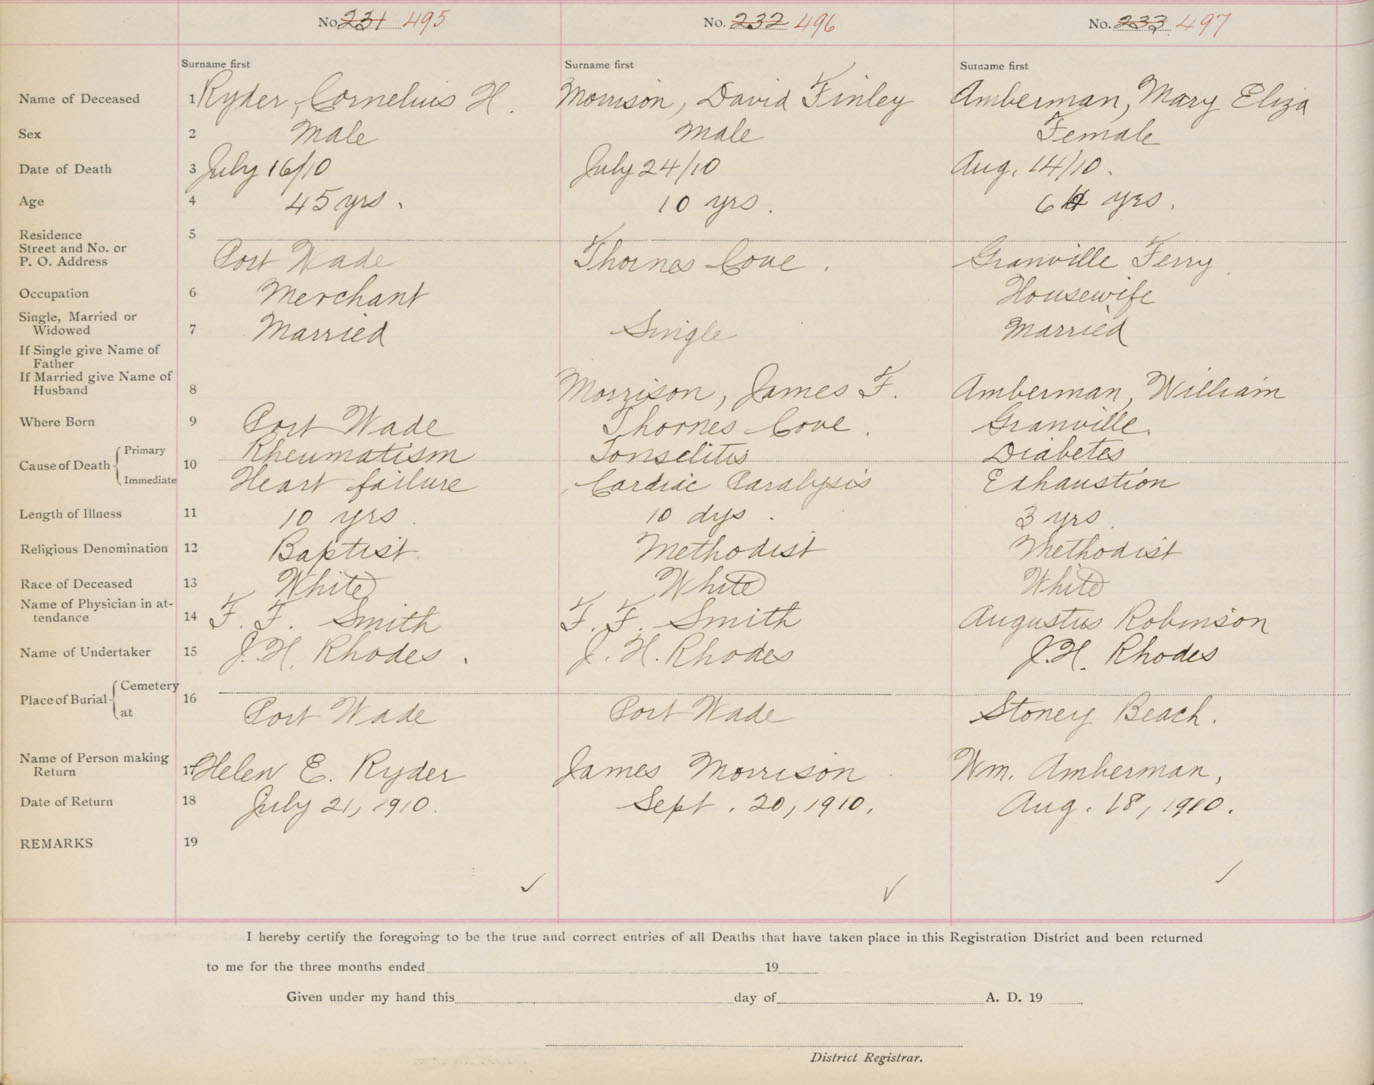 No. 231 495 No. 232 496 No. 233 497
Surname first Surname first Surname first
Name of Deceased 1 Ryder, Cornelius H. Morrison, David Finley Amberman, Mary Eliza
Sex 2 Male Male Female
Date of Death 3 July 16/10 July 24/10 Aug. 14/10.
Age 4 45 yrs. 10 yrs. 64 yrs.
Residence 5
Street and No. or
P. O. Address Port Wade Thornes Cove. Granville Ferry.
Occupation 6 Merchant Housewife
Single, Married or
Widowed 7 Married Single Married
If Single give Name of
Father
If Married give Name of
Husband 8 Morrison, James F. Amberman, William
Where Born 9 Port Wade Thornes Cove. Granville.
Cause of Death Primary 10 Rheumatism Tonselitis Diabetes
Immediate Heart failure Cardiac Paralysis Exhaustion
Length of Illness 11 10 yrs. 10 dys. 3 yrs.
Religious Denomination 12 Baptist Methodist Methodist
Race of Deceased 13 White White White
Name of Physician in at-
tendance 14 F. F. Smith F. F. Smith Augustus Robinson
Name of Undertaker 15 J. H. Rhodes. J. H. Rhodes J. H. Rhodes
Place of Burial Cemetery 16
at Port Wade Port Wade Stoney Beach.
Name of Person making
Return 17 Helen E. Ryder James Morrison Wm. Amberman,
Date of Return 18 July 21, 1910. Sept. 20, 1910. Aug. 18, 1910.
REMARKS 19
I hereby certify the foregoing to be the true and correct entries of all Deaths that have taken place in this Registration District and been returned
to me for the three months ended 19
Given under my hand this day of A. D. 19
District Registrar.